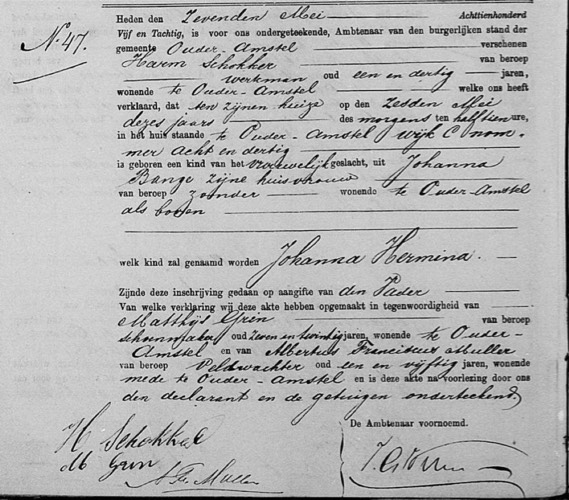 Nº 47.
Heden den Zevenden Mei Achttienhonderd
Vijf en Tachtig, is voor ons ondergeteekende, Ambtenaar van den burgerlijken stand der
gemeente Ouder-Amstel verschenen
Harm Schokker van beroep
werkman oud een en dertig jaren,
wonende te Ouder-Amstel welke ons heeft
verklaard, dat ten zijnen huize op den Zesden Mei
dezes jaars des morgens ten half tien ure,
in het huis staande te Ouder-Amstel wijk C nom-
mer acht en dertig
is geboren een kind van het vrouwelijk geslacht, uit Johanna
Bange zijne huisvrouw
van beroep zonder wonende te Ouder-Amstel
als boven
welk kind zal genaamd worden Johanna Hermina.
Zijnde deze inschrijving gedaan op aangifte van den Vader
Van welke verklaring wij deze akte hebben opgemaakt in tegenwoordigheid van
Matthijs Grin van beroep
schoenmaker oud Zeven en twintig jaren, wonende te Ouder-
Amstel en van Albertus Franciscus Muller
van beroep Veldwachter oud een en vijftig jaren, wonende
mede te Ouder-Amstel en is deze akte na voorlezing door ons
den declarant en de getuigen onderteekend,
De Ambtenaar voornoemd.
H Schokker
M Grin
A. Fr. Muller